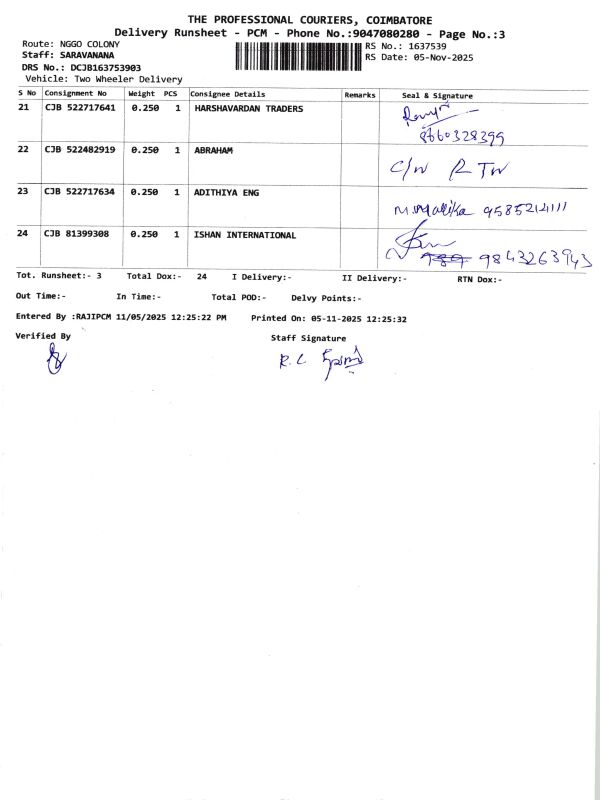 THE PROFESSIONAL COURIERS, COIMBATORE
Delivery Runsheet - PCM - Phone No.:9047080280 - Page No.:3
Route: NGGO COLONY
RS No.: 1637539
Staff: SARAVANANA
RS Date: 05-Nov-2025
DRS No.: DCJB163753903
Vehicle: Two Wheeler Delivery
S No Consignment No Weight PCS Consignee Details Remarks Seal & Signature
21 CJB 522717641 0.250 1 HARSHAVARDAN TRADERS
8660328399
22 CJB 522482919 0.250 1 ABRAHAM
C/W R TW
23 CJB 522717634 0.250 1 ADITHIYA ENG
9585214111
24 CJB 81399308 0.250 1 ISHAN INTERNATIONAL
9843263943
Tot. Runsheet:- 3 Total Dox:- 24 I Delivery:- II Delivery:- RTN Dox:-
Out Time:- In Time:- Total POD:- Delvy Points:-
Entered By :RAJIPCM 11/05/2025 12:25:22 PM Printed On: 05-11-2025 12:25:32
Verified By Staff Signature
R. C